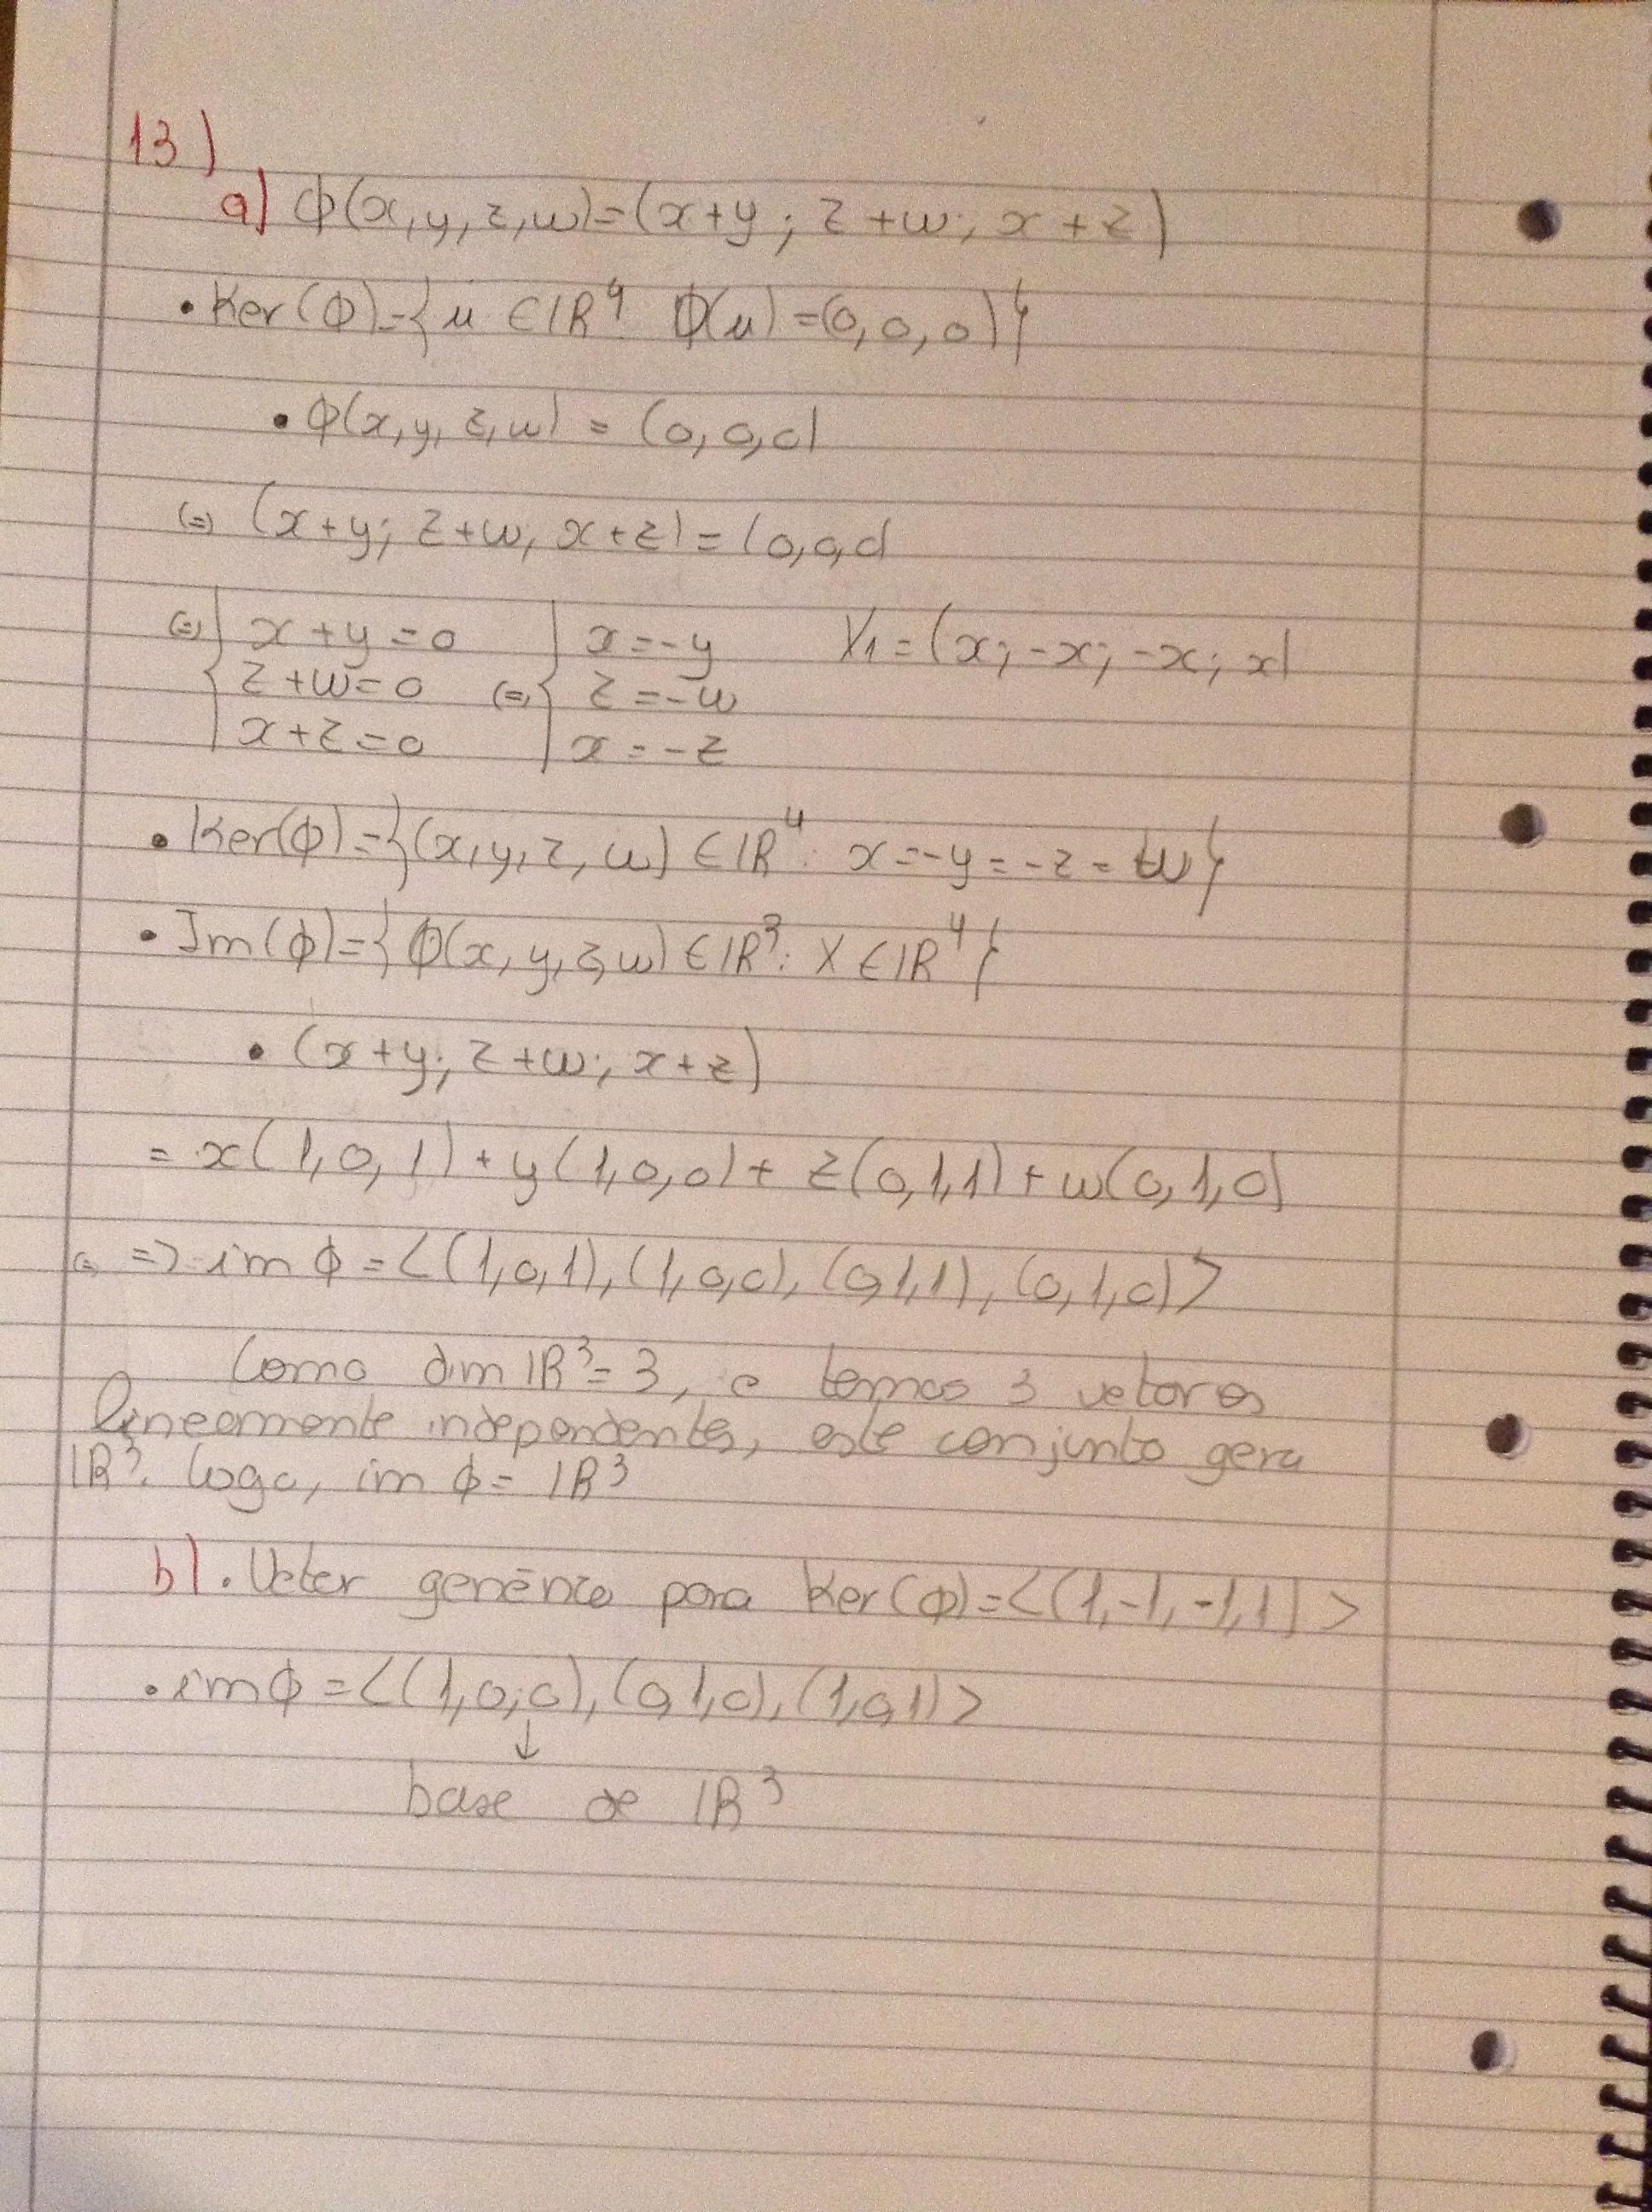 13)
a) ϕ(x,y,z,w)=(x+y; z+w; x+z)
• Ker(ϕ)={u ∈ IR⁴: ϕ(u)=(0,0,0)}
• ϕ(x,y,z,w) = (0,0,0)
(=) (x+y; z+w; x+z)=(0,0,0)
(=) { x+y=0 { x=-y X₁=(x; -x; -x; x)
z+w=0 (=) z=-w
x+z=0 x=-z
• Ker(ϕ)={(x,y,z,w) ∈ IR⁴: x=-y=-z=w}
• Im(ϕ)={ϕ(x,y,z,w) ∈ IR³: X ∈ IR⁴}
• (x+y; z+w; x+z)
= x(1,0,1)+y(1,0,0)+z(0,1,1)+w(0,1,0)
(=) => im ϕ=<(1,0,1),(1,0,0),(0,1,1),(0,1,0)>
Como dim IR³=3, e temos 3 vetores
linearmente independentes, este conjunto gera
IR³. Logo, im ϕ= IR³
b) • Vetor genérico para Ker(ϕ)=<(1,-1,-1,1)>
• im ϕ=<(1,0,0),(0,1,0),(1,0,1)>
↓
base de IR³